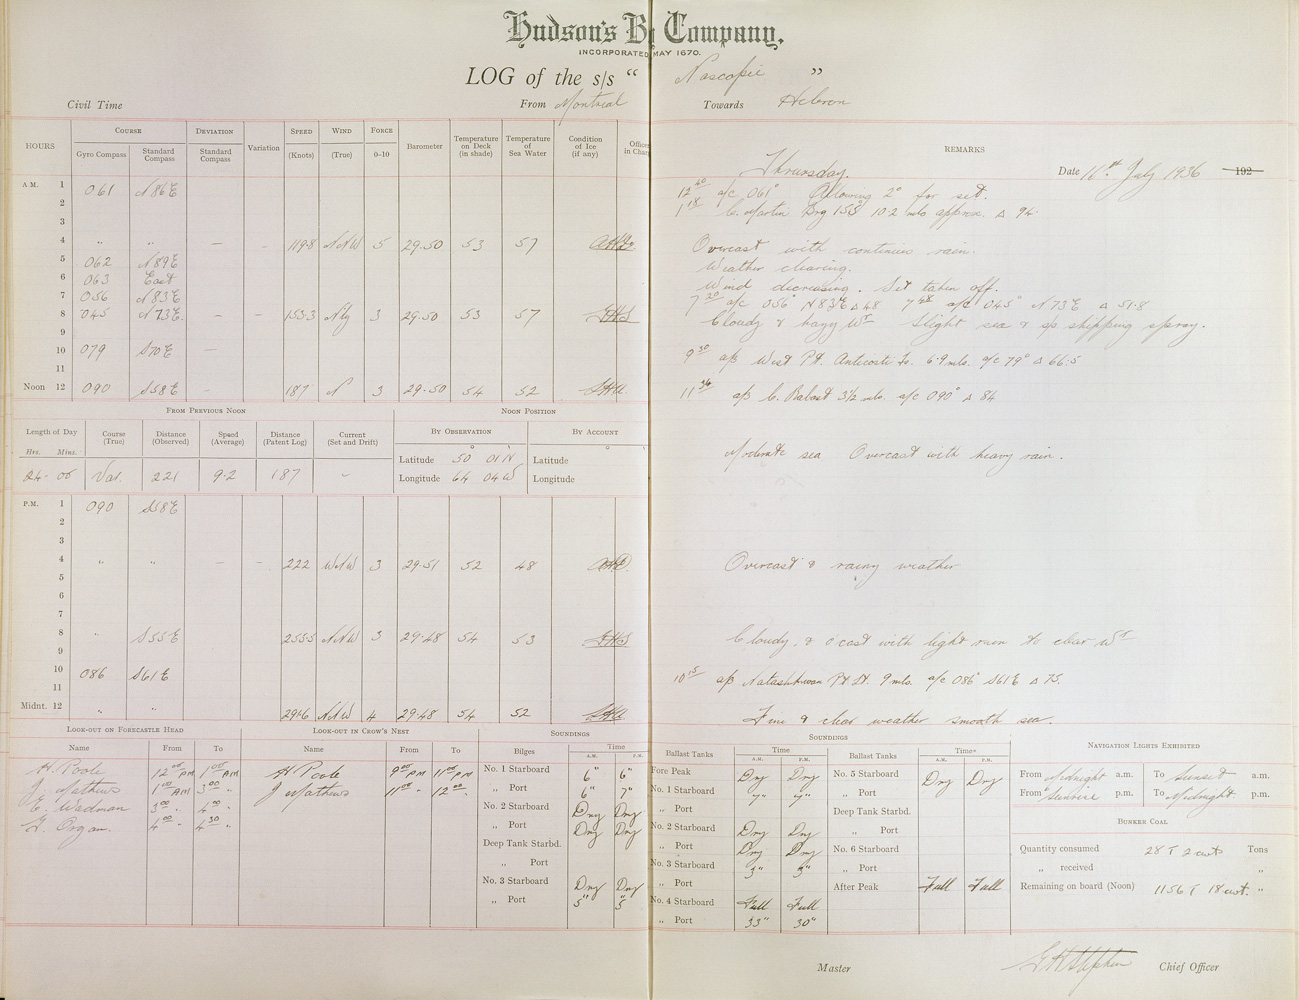 Hudson's Bay Company.
INCORPORATED MAY 1670.
LOG of the s/s " Nascopie "
Civil Time From Montreal Towards Hebron
HOURS COURSE DEVIATION Variation SPEED WIND FORCE Barometer Temperature on Deck (in shade) Temperature of Sea Water Condition of Ice (if any) Officer in Char
Gyro Compass Standard Compass Standard Compass (Knots) (True) 0–10
REMARKS
Thursday. Date 16th July 1936 192
A.M. 1 061 N86E 12 40 a/c 061° Allowing 2° for set.
2 1 18 C. Martin Brg 155° 10.2 mls approx. Δ 94.
3
4 " " – – 119.8 NNW 5 29.50 53 57 Overcast with continuous rain.
5 062 N89E Weather clearing.
6 063 East Wind decreasing. Set taken off.
7 056 N83E 7 20 a/c 056° N83E Δ 48 7 48 a/c 045° N73E Δ 51.8
8 045 N73E. – – 153.3 N'ly 3 29.50 53 57 Cloudy & hazy Wr Slight sea & sp shipping spray.
9
10 079 S70E – 9 30 a/b West Pt. Anticosti Is. 6.9 mls. a/c 79° Δ 66.5
11
Noon 12 090 S58E – 187 N 3 29.50 54 52 11 36 a/b C. 3½ mls. a/c 090° Δ 84
FROM PREVIOUS NOON NOON POSITION
Length of Day Course (True) Distance (Observed) Speed (Average) Distance (Patent Log) Current (Set and Drift) BY OBSERVATION BY ACCOUNT
Hrs. Mins.
Latitude 50° 01'N Latitude
24 - 00 Var. 221 9.2 187 – Longitude 64 04 W Longitude
Moderate sea Overcast with heavy rain.
P.M. 1 090 S58E
2
3
4 " " – – 222 WNW 3 29.51 52 48 Overcast & rainy weather
5
6
7
8 " S55E 255.5 NNW 3 29.48 54 53 Cloudy, & o'cast with light rain to clear Wr
9
10 086 S61E 10 15 a/b Natashkwan Pt Lt. 9 mls. a/c 086° S61E Δ 75.
11
Midnt. 12 " " 291.6 NNW 4 29.48 54 52 Fine & clear weather smooth sea.
LOOK-OUT ON FORECASTLE HEAD LOOK-OUT IN CROW'S NEST SOUNDINGS
Name From To Name From To Bilges Time A.M. P.M.
H. Poole 12 00 PM 1 00 AM H Poole 9 00 PM 11 00 PM No. 1 Starboard 6" 6"
J. Mathews 1 00 AM 3 00 " J Mathews 11 00 " 12 00 " „ Port 6" 7"
E. Wadman 3 00 " 4 00 " No. 2 Starboard Dry Dry
G. Organ. 4 00 " 4 30 " „ Port Dry Dry
Deep Tank Starbd.
„ Port
No. 3 Starboard Dry Dry
„ Port 5" 5
SOUNDINGS
Ballast Tanks Time A.M. P.M. Ballast Tanks Time A.M. P.M.
Fore Peak Dry Dry No. 5 Starboard Dry Dry
No. 1 Starboard 7" 7" „ Port
„ Port Deep Tank Starbd.
No. 2 Starboard Dry Dry „ Port
„ Port Dry Dry No. 6 Starboard
No. 3 Starboard 3" 3" „ Port
„ Port After Peak Full Full
No. 4 Starboard Full Full
„ Port 33" 30"
NAVIGATION LIGHTS EXHIBITED
From Midnight a.m. To Sunset a.m.
From Sunrise p.m. To Midnight. p.m.
BUNKER COAL
Quantity consumed 28 T 2 cwt Tons
„ received „
Remaining on board (Noon) 1156 T 18 cwt. „
Master Chief Officer